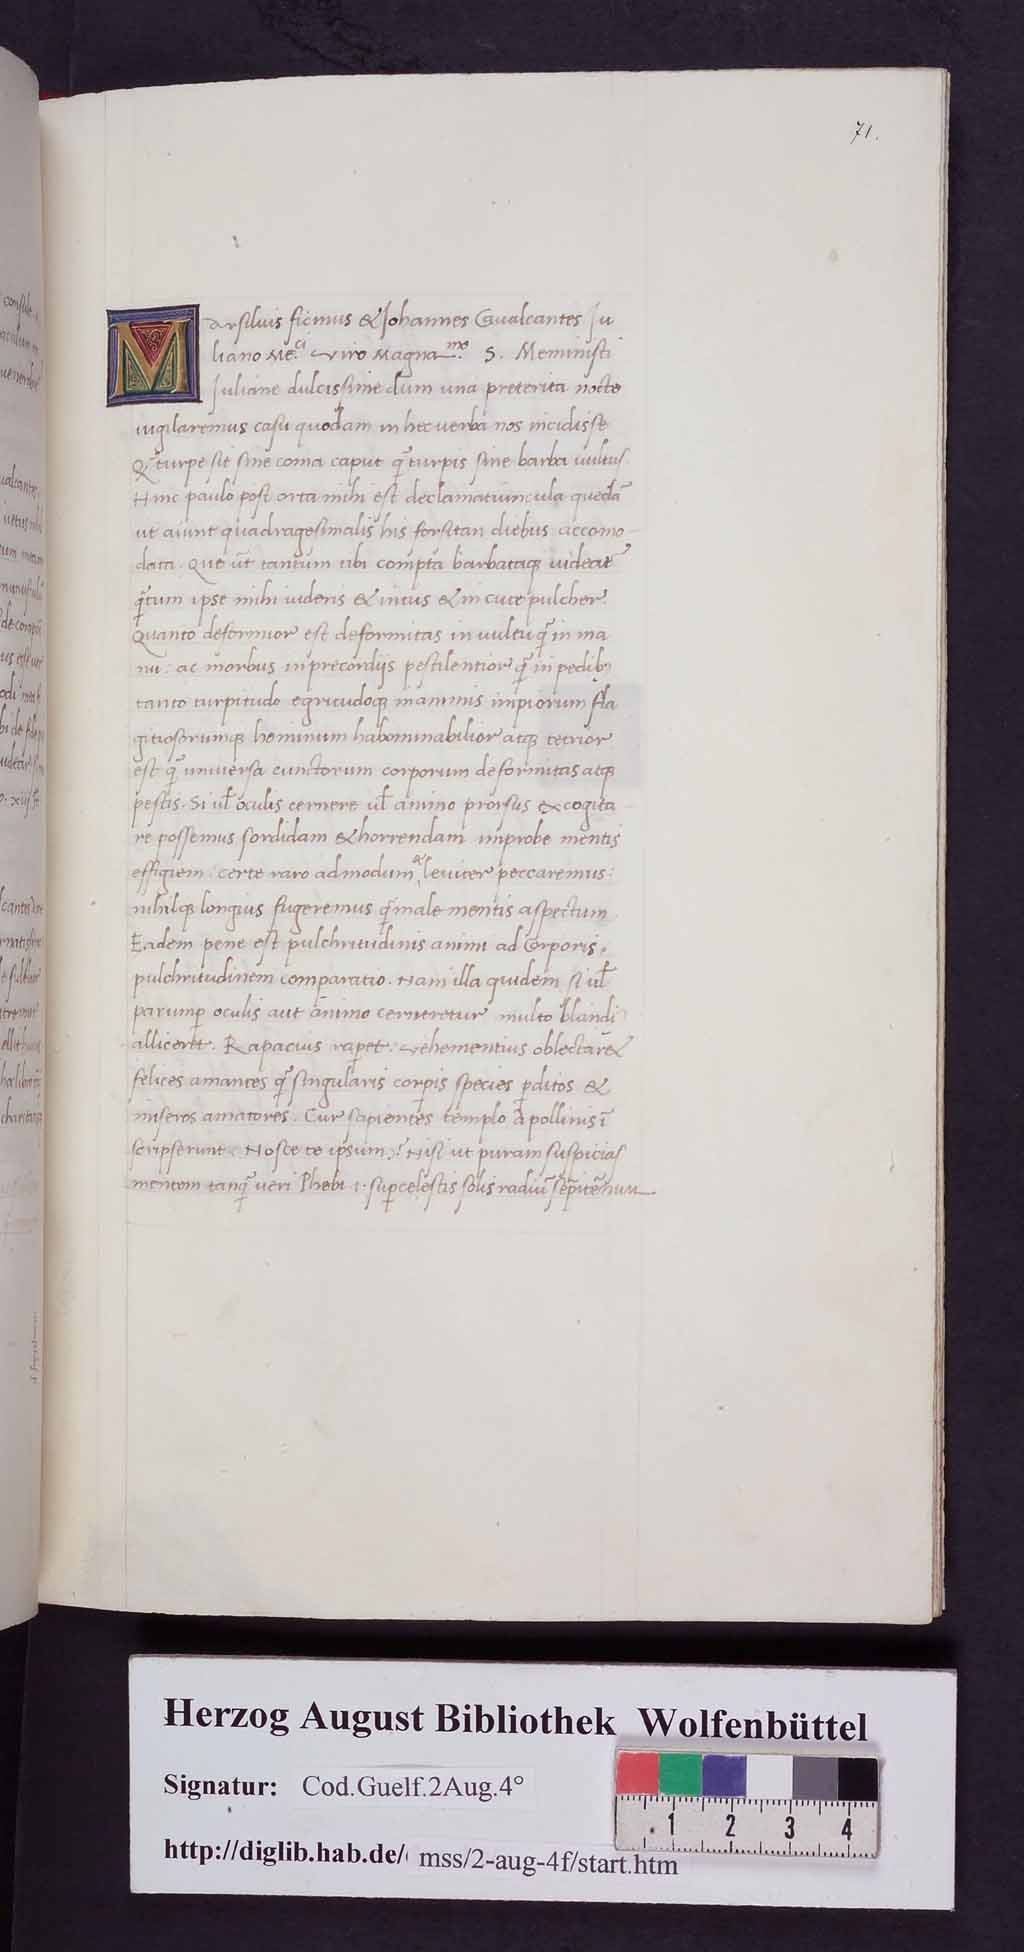 71.
Marsilius ficinus & Johannes Cavalcantes Ju
liano Me.ci viro Magna.mo S. Meministi
Juliane dulcissime dum una preterita nocte
vigilaremus casu quodam in hec verba nos incidisse
Q̃ turpe sit sine coma caput q̃ turpis sine barba vultus.
Hinc paulo post orta mihi est declamatiuncula quedã
ut aiunt quadragesimalis his forsitan diebus accomo
data. Que ut̃ tantum tibi compta barbataq; videat̃
q̃tum ipse mihi videris & intus & in cute pulcher.
Quanto deformior est deformitas in vultu q̃ in ma
nu: ac morbus in precordijs pestilentior q̃ in pedib;
tanto turpitudo egritudoq; in animis impiorum fla
gitiosorumq; hominum habominabilior atq; tetrior
est q̃ universa cunctorum corporum deformitas atq;
pestis. Si ul̃ oculis cernere ul̃ animo prorsus excogita
re possemus sordidam & horrendam improbe mentis
effigiem: certe raro admodum ac leviter peccaremus:
nihilq; longius fugeremus q̃ male mentis aspectum
Eadem pene est pulchritudinis animi ad Corporis
pulchritudinem comparatio. Nam illa quidem si ul̃
parump̱ oculis aut animo cerneretur multo blandi
alliceret. Rapacius rap̱et. vehementius oblectaret
felices amantes q̃ singularis corp̱is species p̱ditos &
miseros amatores. Cur sapientes templo Apollinis ĩ
scripserunt. Nosce te ipsum? Nisi ut puram suspicias
mentem tanq̃ veri Phebi .i. sup̱celestis solis radiũ sep̱itẽnum
Herzog August Bibliothek Wolfenbüttel
Signatur: Cod.Guelf.2Aug.4°
1 2 3 4
http://diglib.hab.de/ mss/2-aug-4f/start.htm